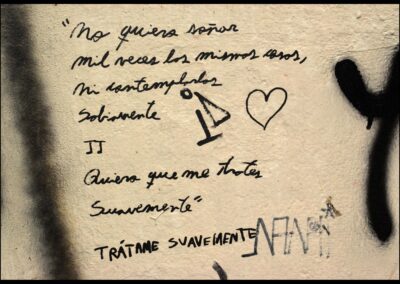 "No quiero soñar
mil veces las mismas cosas,
ni contemplarlas
Sabiamente
II
Quiero que me trates
Suavemente"
TRÁTAME SUAVEMENTE